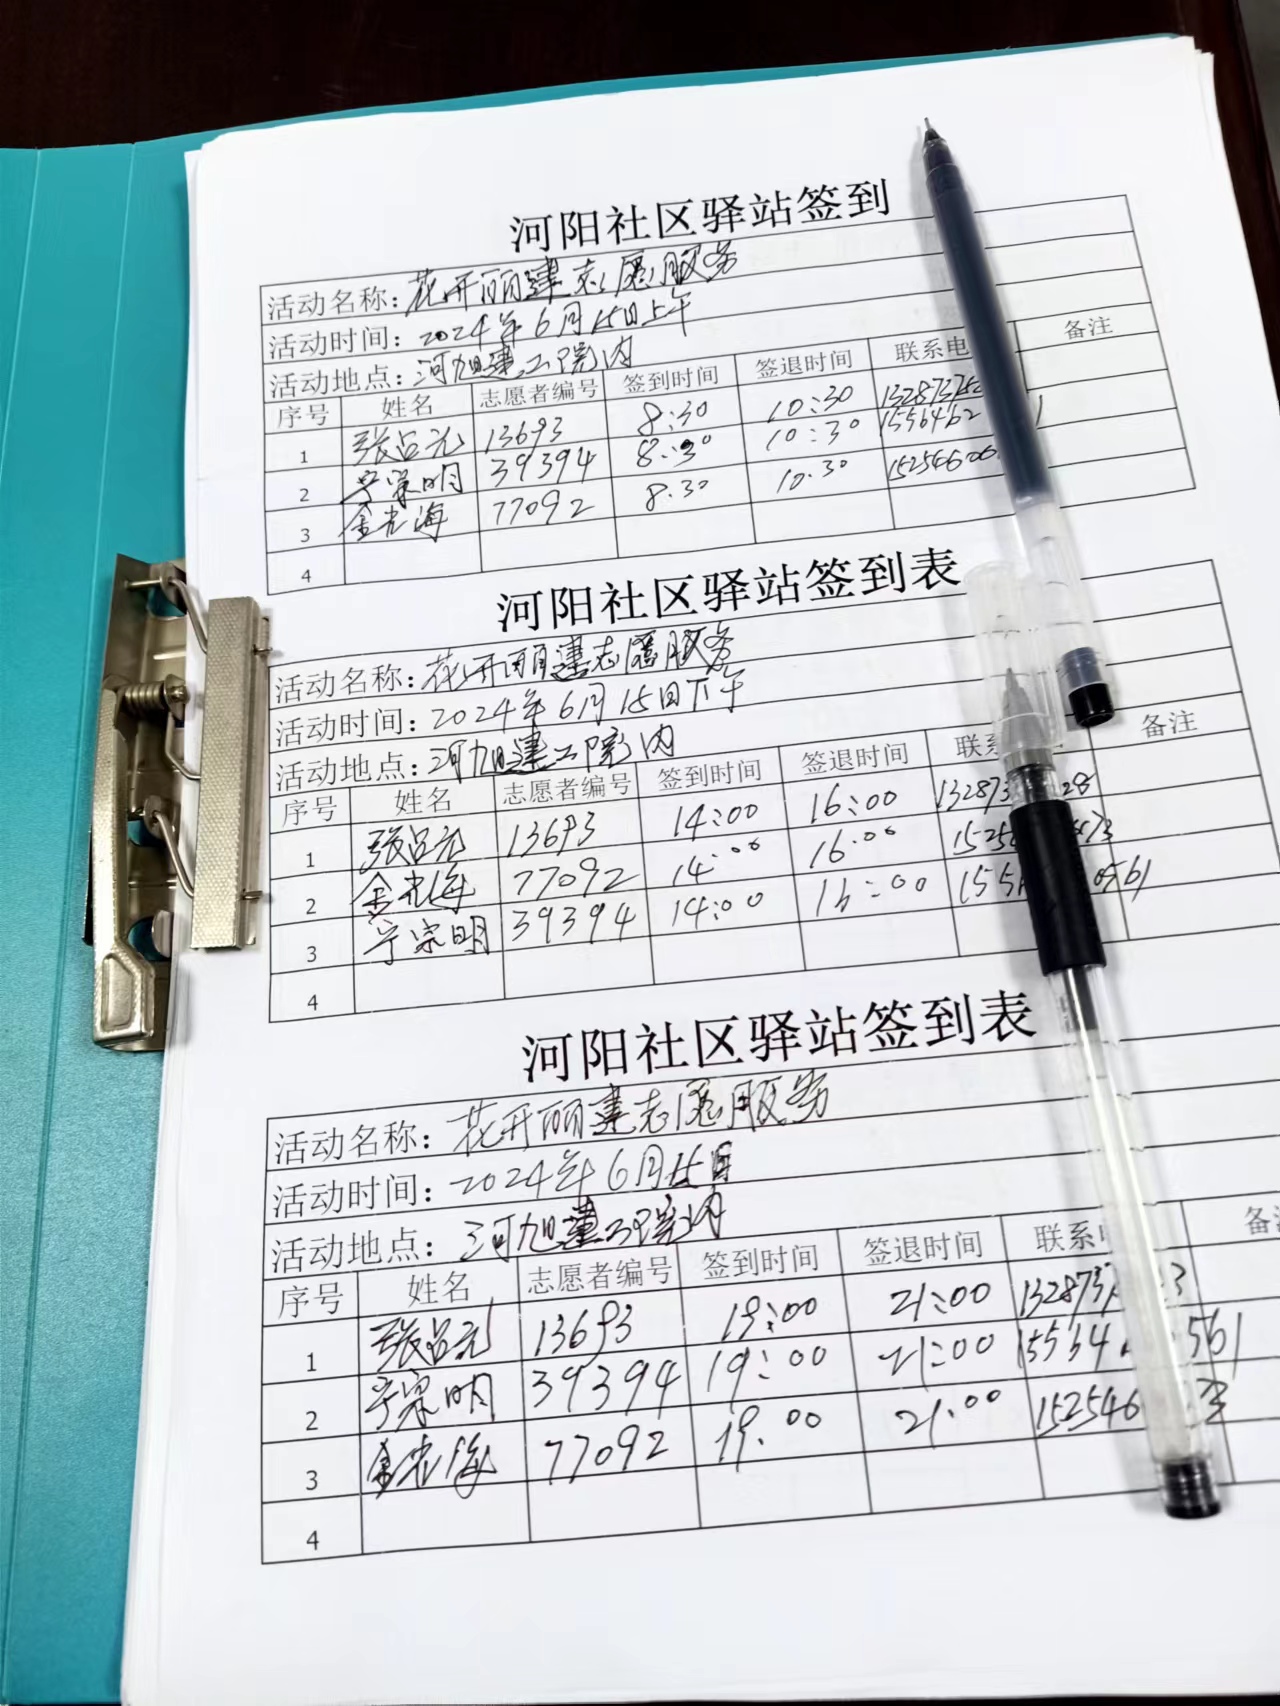 河阳社区驿站签到
活动名称：花开丽建志愿服务
活动时间：2024年6月15日上午
活动地点：河旭建工院内
序号 姓名 志愿者编号 签到时间 签退时间 联系电 备注
1 张吕元 13693 8:30 10:30
2 宁宗明 39394 8:30 10:30 1556462
3 金光海 77092 8:30 10:30 15254606
4
河阳社区驿站签到表
活动名称：花开丽建志愿服务
活动时间：2024年6月15日下午
活动地点：河旭建工院内
序号 姓名 志愿者编号 签到时间 签退时间 联 备注
1 张吕元 13693 14:00 16:00 13287 28
2 金光海 77092 14:00 16:00 1525 73
3 宁宗明 39394 14:00 16:00 155 0561
4
河阳社区驿站签到表
活动名称：花开丽建志愿服务
活动时间：2024年6月15日
活动地点：河旭建工院内
序号 姓名 志愿者编号 签到时间 签退时间 联系 备
1 张吕元 13693 19:00 21:00 132873 3
2 宁宗明 39394 19:00 21:00 15564 561
3 金光海 77092 19:00 21:00 152546 3
4